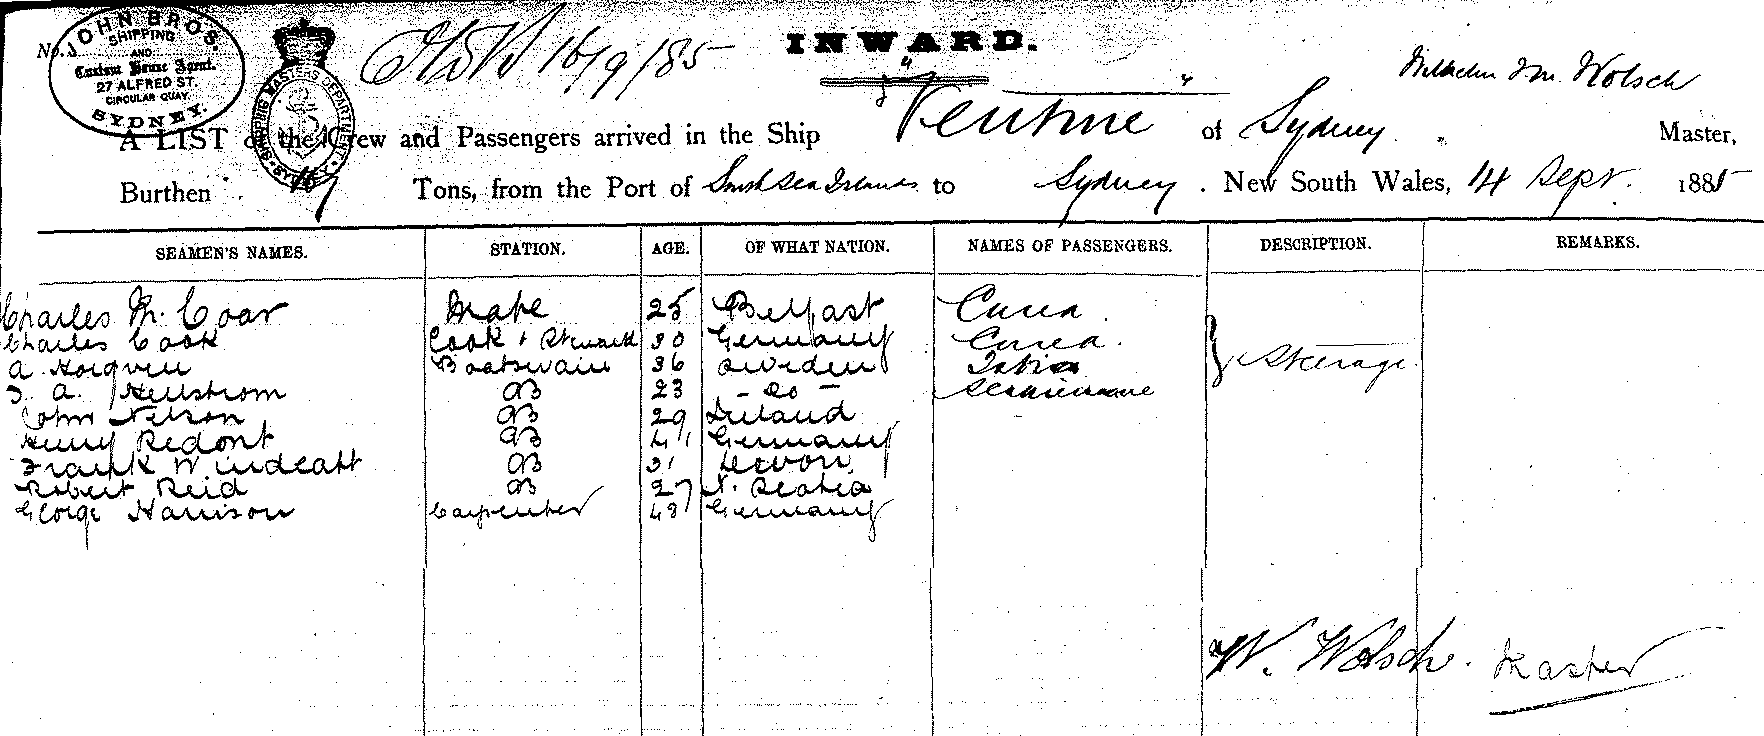 No.
JOHN BROS.
SHIPPING
AND
Custom House Agent.
27 ALFRED ST.
CIRCULAR QUAY.
SYDNEY.
SHIPPING MASTERS DEPARTMENT
SYDNEY
16/9/85
INWARD.
Wilhelm Wolsch
A LIST of the Crew and Passengers arrived in the Ship of Sydney Master,
Burthen Tons, from the Port of South Sea Islands to Sydney. New South Wales, 14 Sept. 1885
SEAMEN'S NAMES. STATION. AGE. OF WHAT NATION. NAMES OF PASSENGERS. DESCRIPTION. REMARKS.
Charles M. Coar Mate 25 Belfast
Charles Cook Cook & Steward 30 Germany Steerage
A. Boatswain 36 Sweden
A. Hellstrom AB 23 - do -
John Nelson AB 29 Ireland
Henry Redont AB 41 Germany
Frank Windeatt AB 31 Devon
Robert Reid AB 27 N. Scotia
George Harrison Carpenter 48 Germany
W. Wolsch. Master